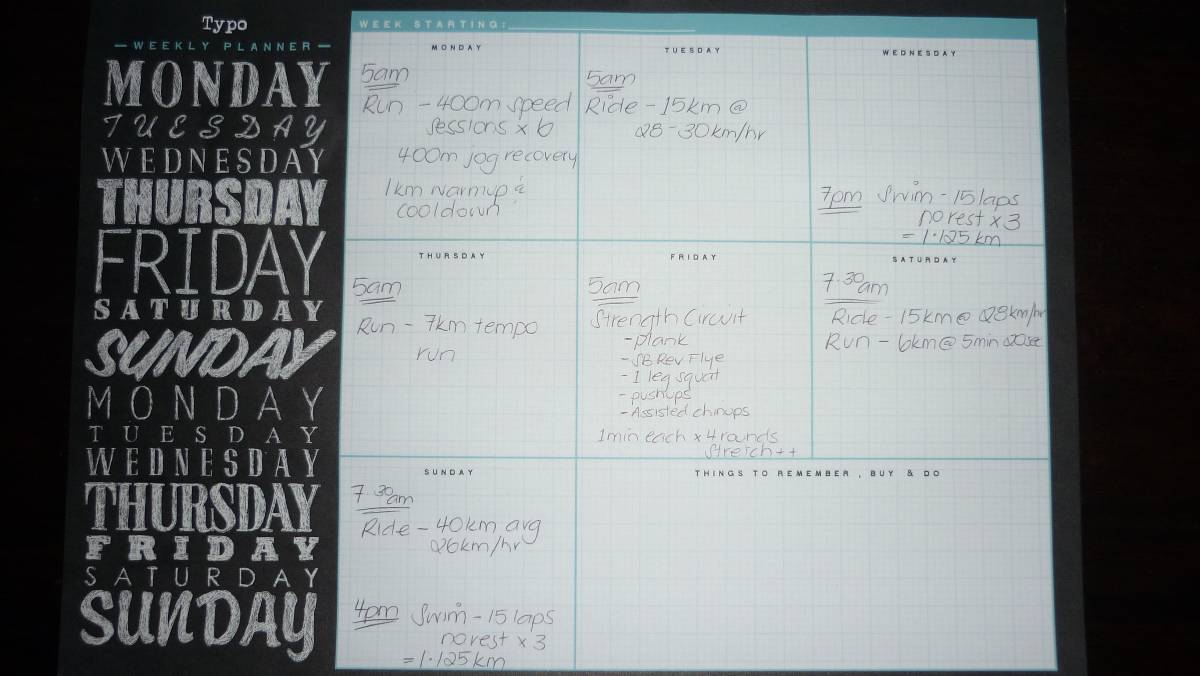 Typo
WEEKLY PLANNER
MONDAY
TUESDAY
WEDNESDAY
THURSDAY
FRIDAY
SATURDAY
SUNDAY
MONDAY
TUESDAY
WEDNESDAY
THURSDAY
FRIDAY
SATURDAY
SUNDAY
WEEK STARTING:
MONDAY
5am
Run - 400m speed
sessions x 6
400m jog recovery
1km warmup &
cooldown
TUESDAY
5am
Ride - 15km @
28-30km/hr
WEDNESDAY
7pm Swim - 15 laps
no rest x 3
= 1.125 km
THURSDAY
5am
Run - 7km tempo
run
FRIDAY
5am
Strength Circuit
- plank
- SB Rev Flye
- 1 leg squat
- pushups
- Assisted chinups
1min each x 4 rounds
Stretch ++
SATURDAY
7.30am
Ride - 15km @ 28km/hr
Run - 6km @ 5min 20sec
SUNDAY
7.30am
Ride - 40km avg
26km/hr
4pm Swim - 15 laps
no rest x 3
= 1.125 km
THINGS TO REMEMBER, BUY & DO